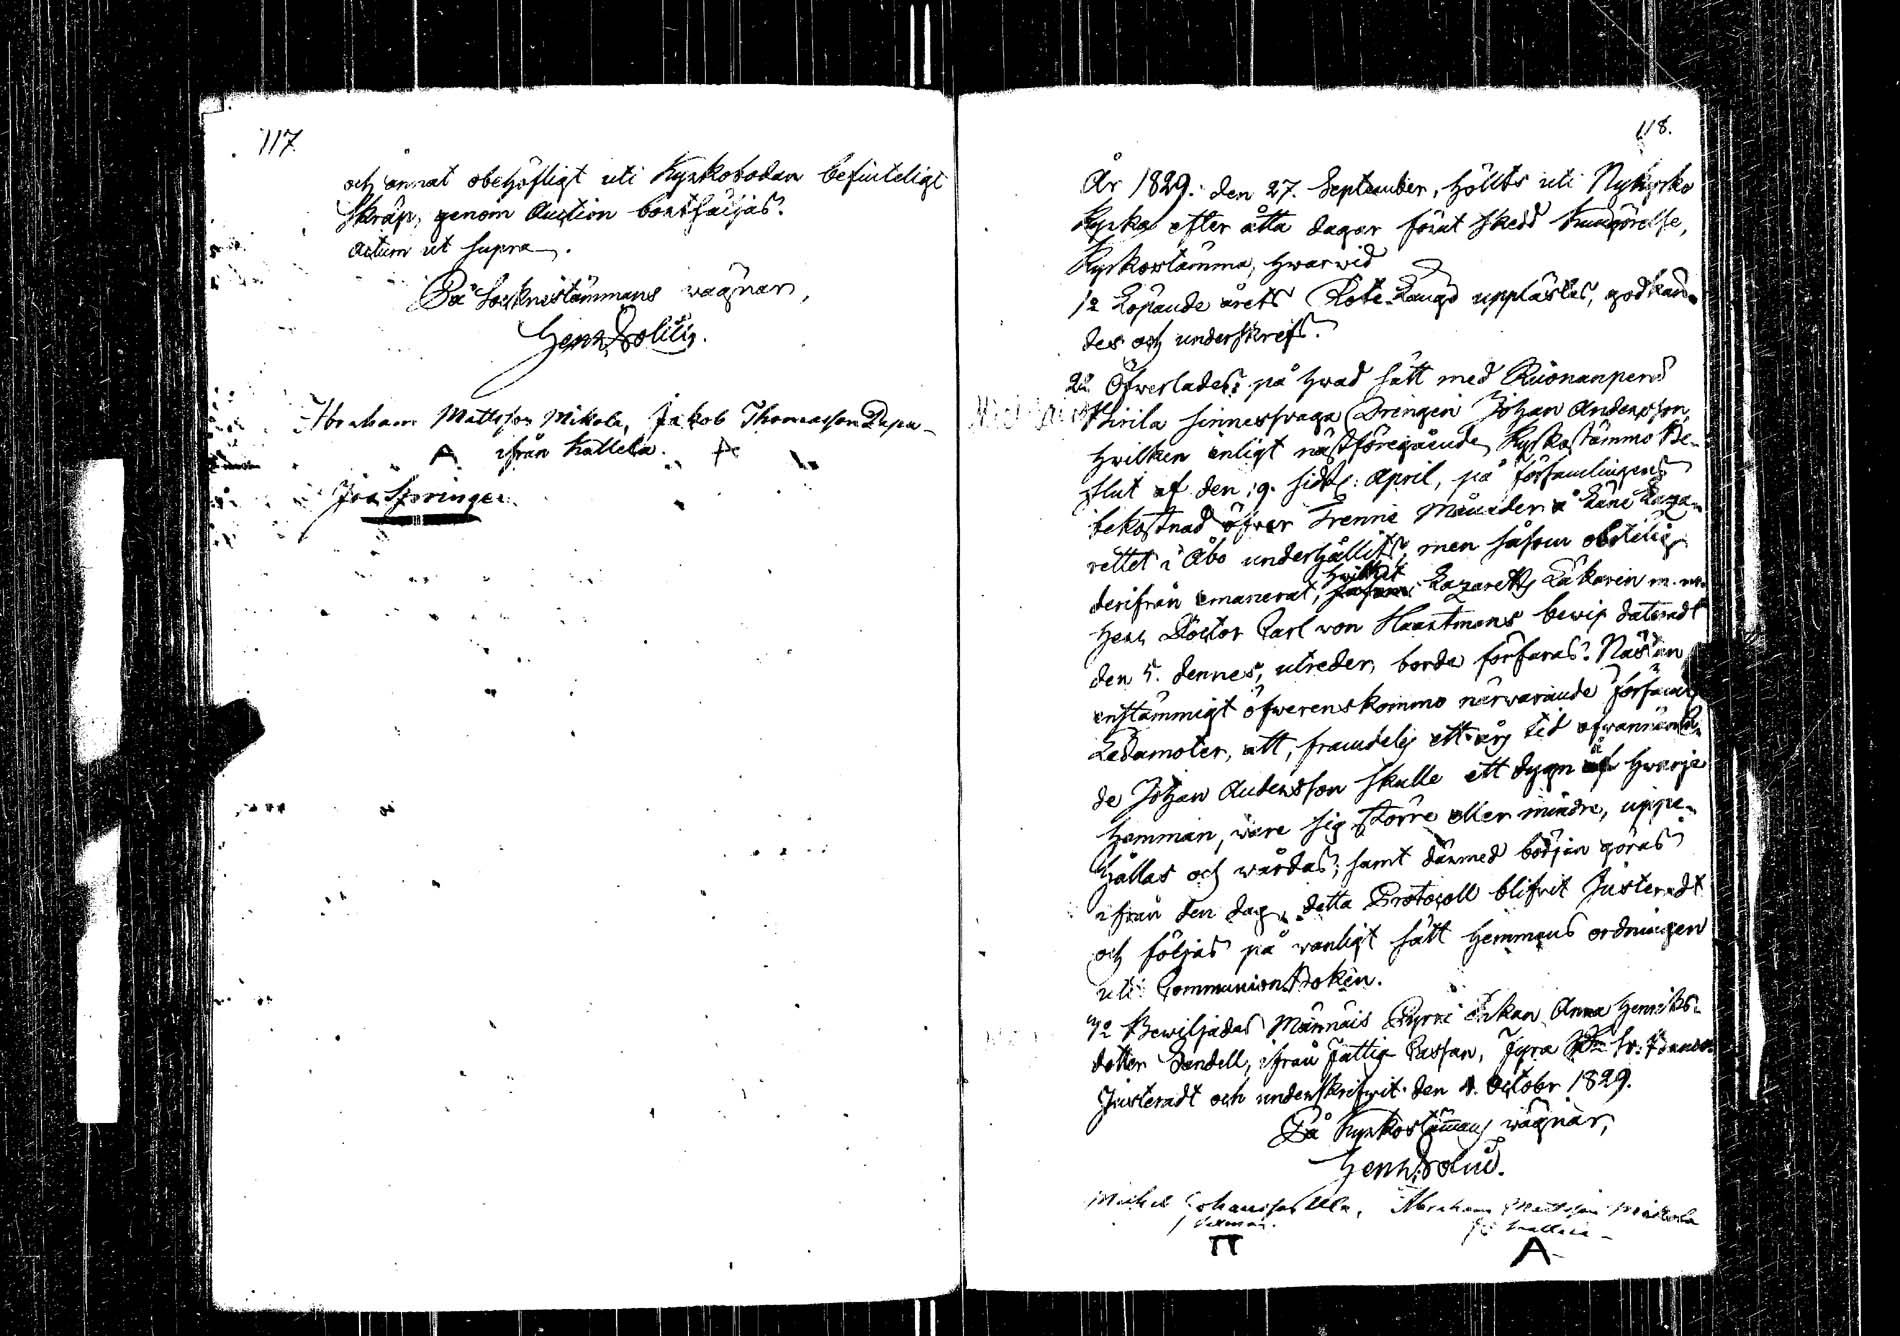 117.
och annat obehöfligt uti Kyrkobodan befinteligt
skräp, genom Auction bortsäljas.
Actum ut supra.
På Socknestämmans wägnar,
Henr:
Abraham Mattsson Mikola, Jakob Thomasson Papa
A ifrån Kallela.
Joh Springer.
118.
År 1829. den 27. September, hölts uti Nykyrko
Kyrka efter åtta dagar förut skedd kungörelse,
Kyrkostämma, hwarwid
1o Löpande årets Rote-Längd upplästes, godkän-
des och underskrefs.
2o Öfwerlades: på hwad sätt med Ruonanperä
Kirila sinnessvaga Drengen Johan Andersson,
hwilken enligt nästföregående Kyrkostämmo Be-
slut af den 19. sidstl: April, på Församlingens
bekostnad öfver Trenne Månader å Läne Laza-
rettet i Åbo underhållits, men såsom obotelig
derifrån emanerat, hwilket Lazaretts Läkaren m.m.
Herr Doctor Carl von Haartmans bewis dateradt
den 5. dennes, utreder, borde förfaras. Nästan
enstämmigt öfwerenskommo närwarande Församl:
Ledamoter, att, framdeles ett års tid ofwannämn-
de Johan Andersson skulle ett dygn å hwarje
Hemman, ware sig större eller mindre, uppe-
hållas och wårdas; samt därmed början göras
ifrån den dag, detta Protocoll blifvit Justeradt
och följas på wanligt sätt Hemmans ordningen
uti Communion Boken.
3o Bewiljades Männäis Pyrri Enkan Anna Henriks-
dotter Sandell, ifrån Fattig Cassan, Fyra
Justeradt och underskrifwit den 4. Octobr 1829.
På Kyrkostämans wägnar,
Henr:
Michel Johansson Abraham Mattsson Mikola
A